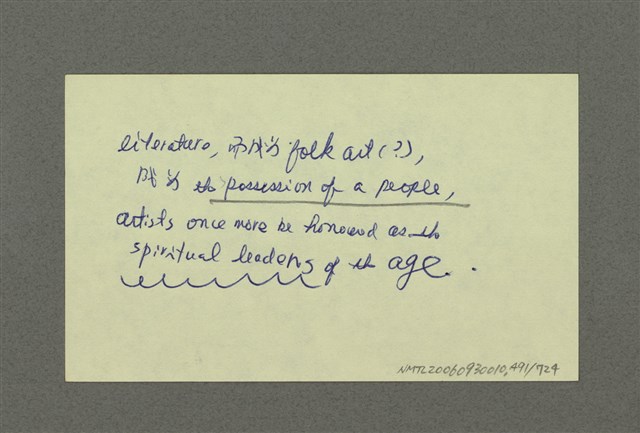 literature, 亦成为 folk art (?),
成为 the possession of a people,
artists once more be honoured as the
spiritual leaders of the age..
NMTL20060930010,491/724